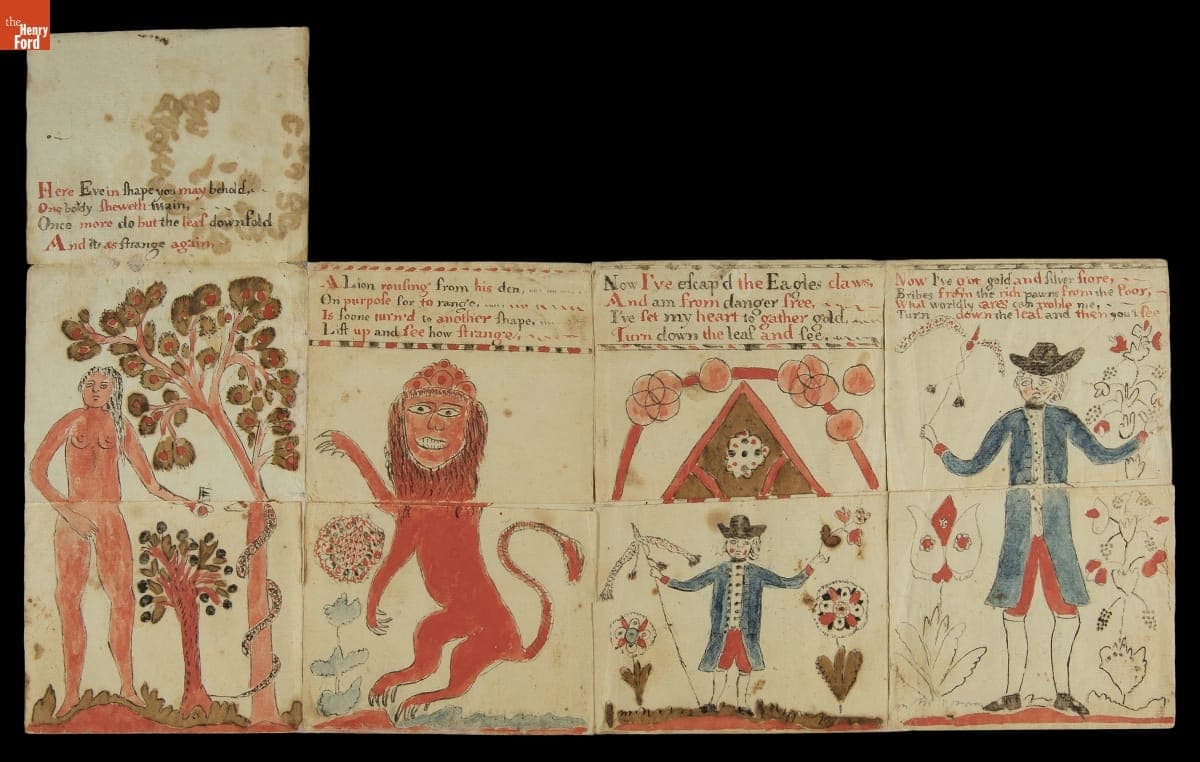 the
Henry
Ford
Here Eve in ſhape you may behold,
One boldy ſheweth twain,
Once more do but the leaf downfold
And its as ſtrange again,
A Lion rouſing from his den,
On purpoſe for to range,
Is ſoone turn'd to another ſhape,
Lift up and ſee how ſtrange,
Now I've eſcap'd the Eagles claws,
And am from danger free,
I've ſet my heart to gather gold,
Turn down the leaf and ſee,
Now I've got gold and ſilver ſtore,
Bribes from the rich pawns from the Poor,
What worldly cares can troble me,
Turn down the leaf and then you'l ſee